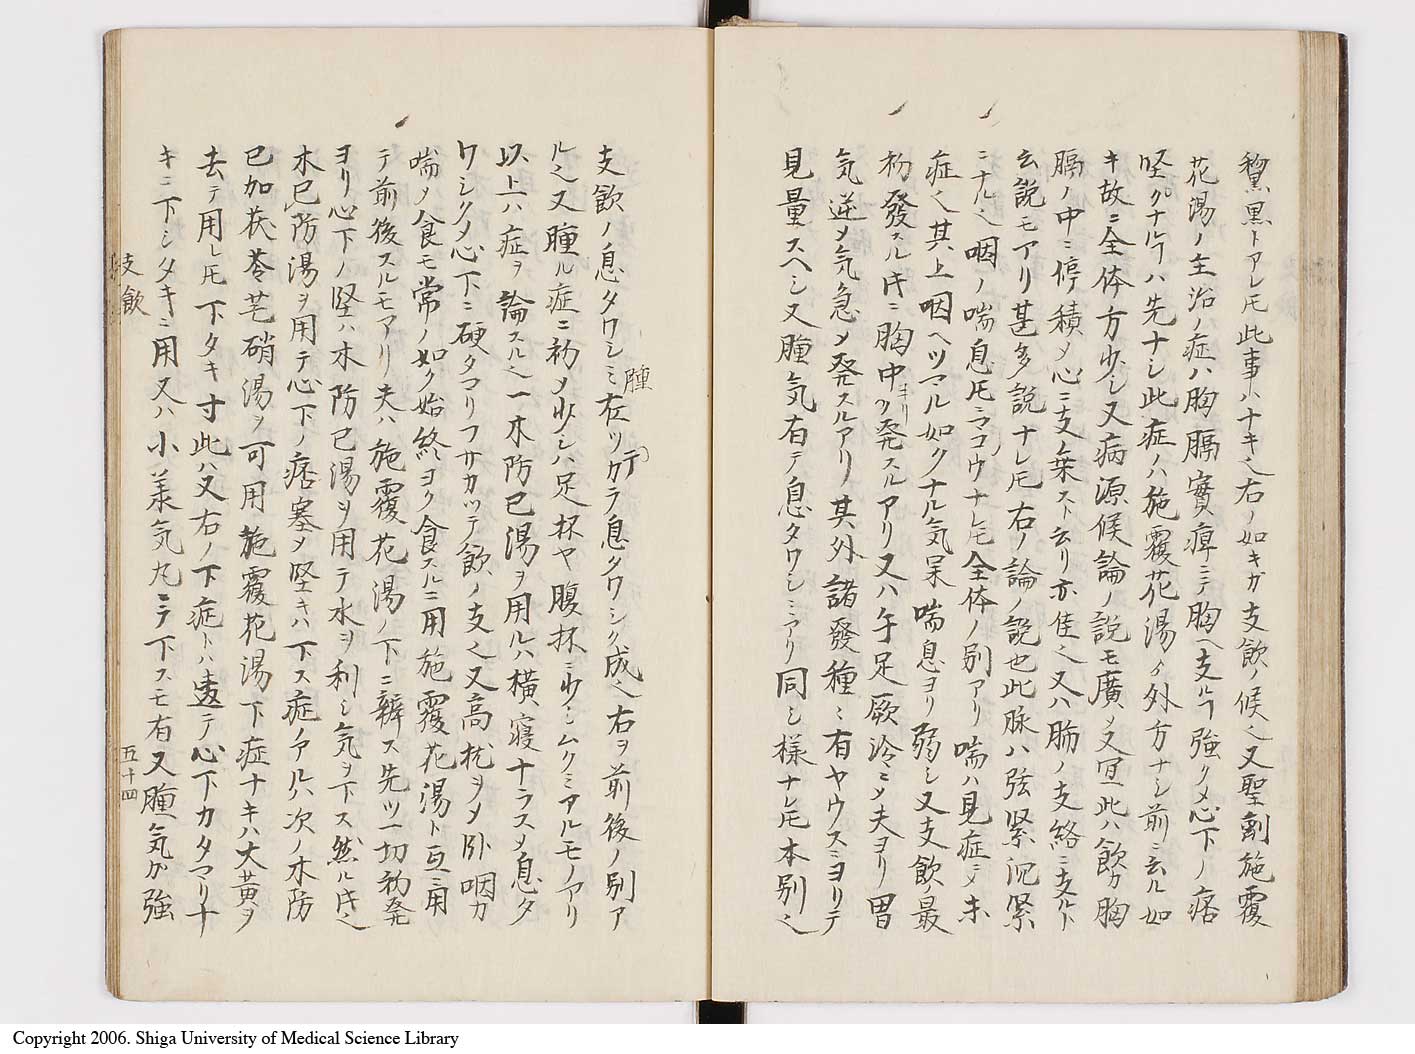 黧黒トアレ𪜈此事ハナキ也右ノ如キガ支飲ノ候也又聖剤施覆
花湯ノ主治ノ症ハ胸膈實痺ニテ胸ヘ支ルヿ強クメ心下ノ痞
堅クナルヿハ先ナシ此症ノハ施覆花湯ゟ外方ナシ前ニ云ル如
キ故ニ全体方少シ又病源候論ノ説モ廣メ又冝此ハ飲カ胸
膈ノ中ニ停積メ心ニ支乗スト云リ亦佳也又ハ肺ノ支絡ニ支ルト
云説モアリ甚多説ナレ𪜈右ノ論ノ説也此脉ハ弦緊沉緊
ニナル也咽ノ喘息𪜈マコウナレ𪜈全体ノ別アリ喘ハ見症ニメ未
症也其上咽ヘツマル如クナル気呆喘息ヨリ弱シ又支飲ノ最
初發スル時ニ胸中キリ発スルアリ又ハ手足厥冷ニメ夫ヨリ胃
気逆メ気急メ発スルアリ其外諸發種ミ有ヤウスミヨリテ
見量スヘシ又腫気有テ息タワシミアリ同シ様ナレ𪜈本別也
支飲ノ息タワシミ在ツカラ息タワシク成也右ヲ前後ノ別ア
腫テ
ル也又腫ル症ニ初メ少シハ足抔ヤ腹抔ニ少シムクミアルモノアリ
以上ハ症ヲ論スル也一木防已湯ヲ用ルハ横寝ナラスメ息タ
ワシクメ心下ニ硬タマリフサカツテ飲ノ支也又高枕ヲメ卧咽カ
喘メ食モ常ノ如ク始終ヨク食スルニ用施覆花湯ト互ニ用
テ前後スルモアリ夫ハ施覆花湯ノ下ニ辨ス先ツ一切初発
ヨリ心下ノ堅ハ木防已湯ヲ用テ水ヲ利シ気ヲ下ス然ル時ハ
木已防湯ヲ用テ心下ノ痞塞メ堅キハ下ス症ノアル𠆢次ノ木防
已加茯苓芒硝湯ヲ可用施覆花湯下症ナキハ大黄ヲ
去テ用レ𪜈下タキ寸此ハ又右ノ下症トハ遠テ心下カタマリナ
キニ下シタキニ用又ハ小羕気丸ニテ下スモ有又腫気カ強
支飲
五十四
Copyright 2006. Shiga University of Medical Science Library